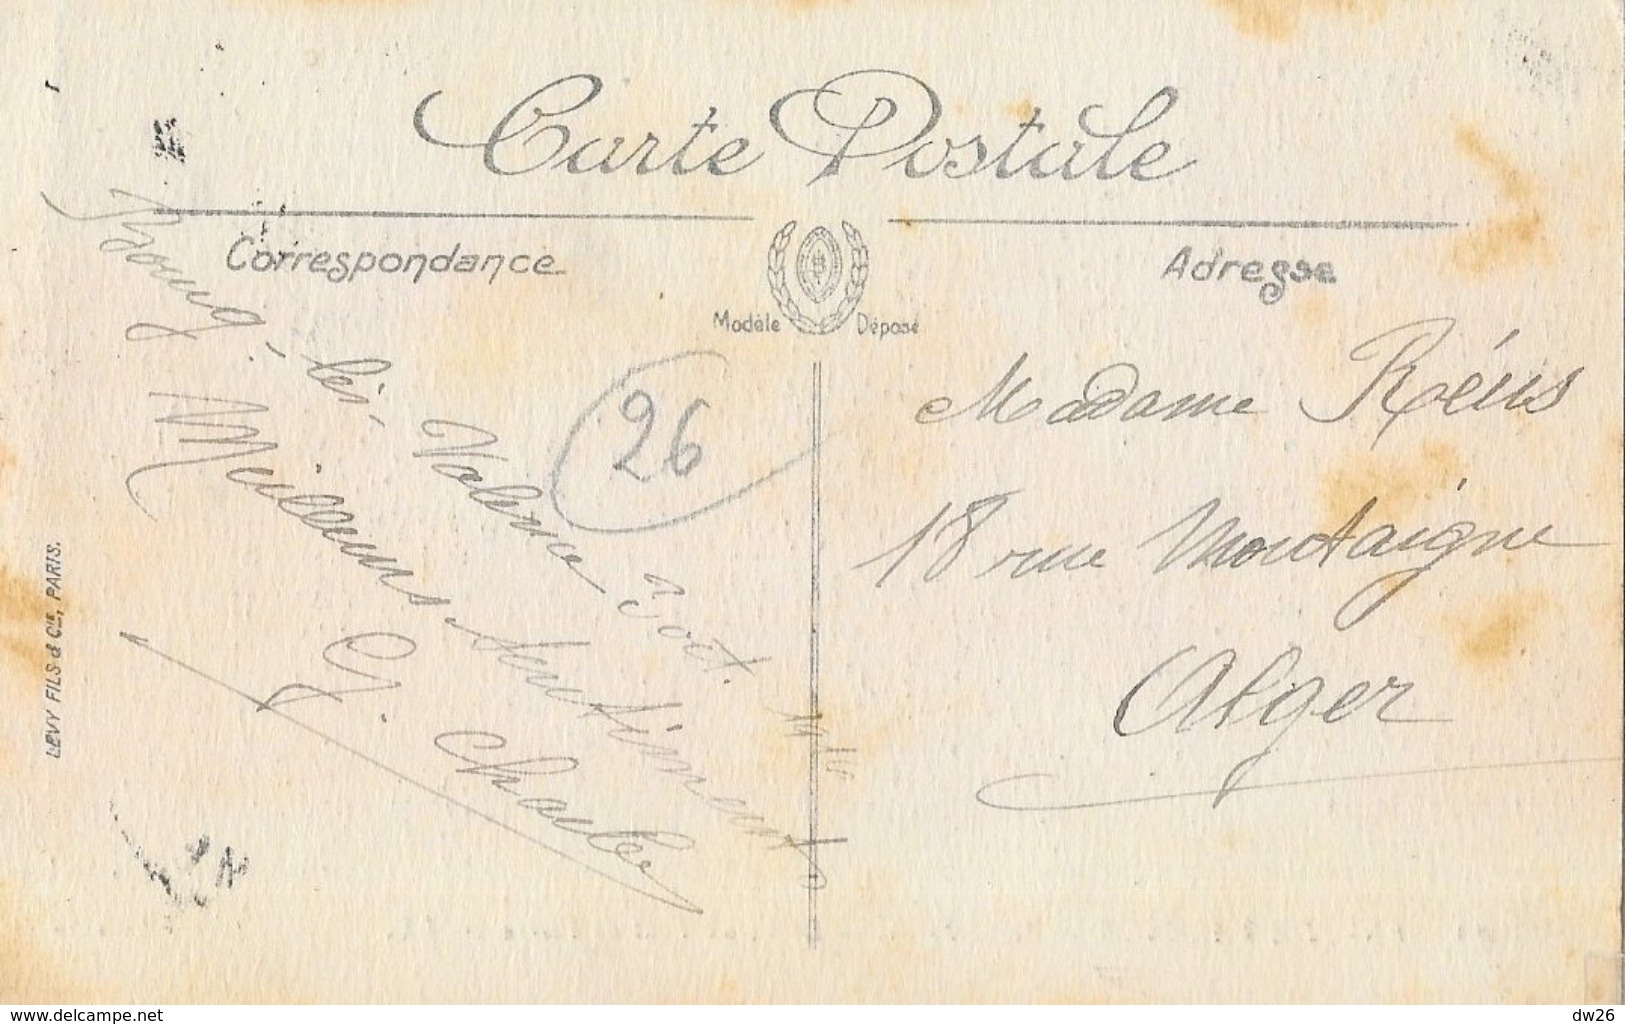 Carte Postale
Correspondance
Adresse
Modèle Déposé
Bourg-lès-Valence Août.
Meilleurs sentiments
G.
26
Madame Réus
18 rue Montaigne
Alger
LEVY FILS & Cie, PARIS.
http://www.delcampe.net
dw26